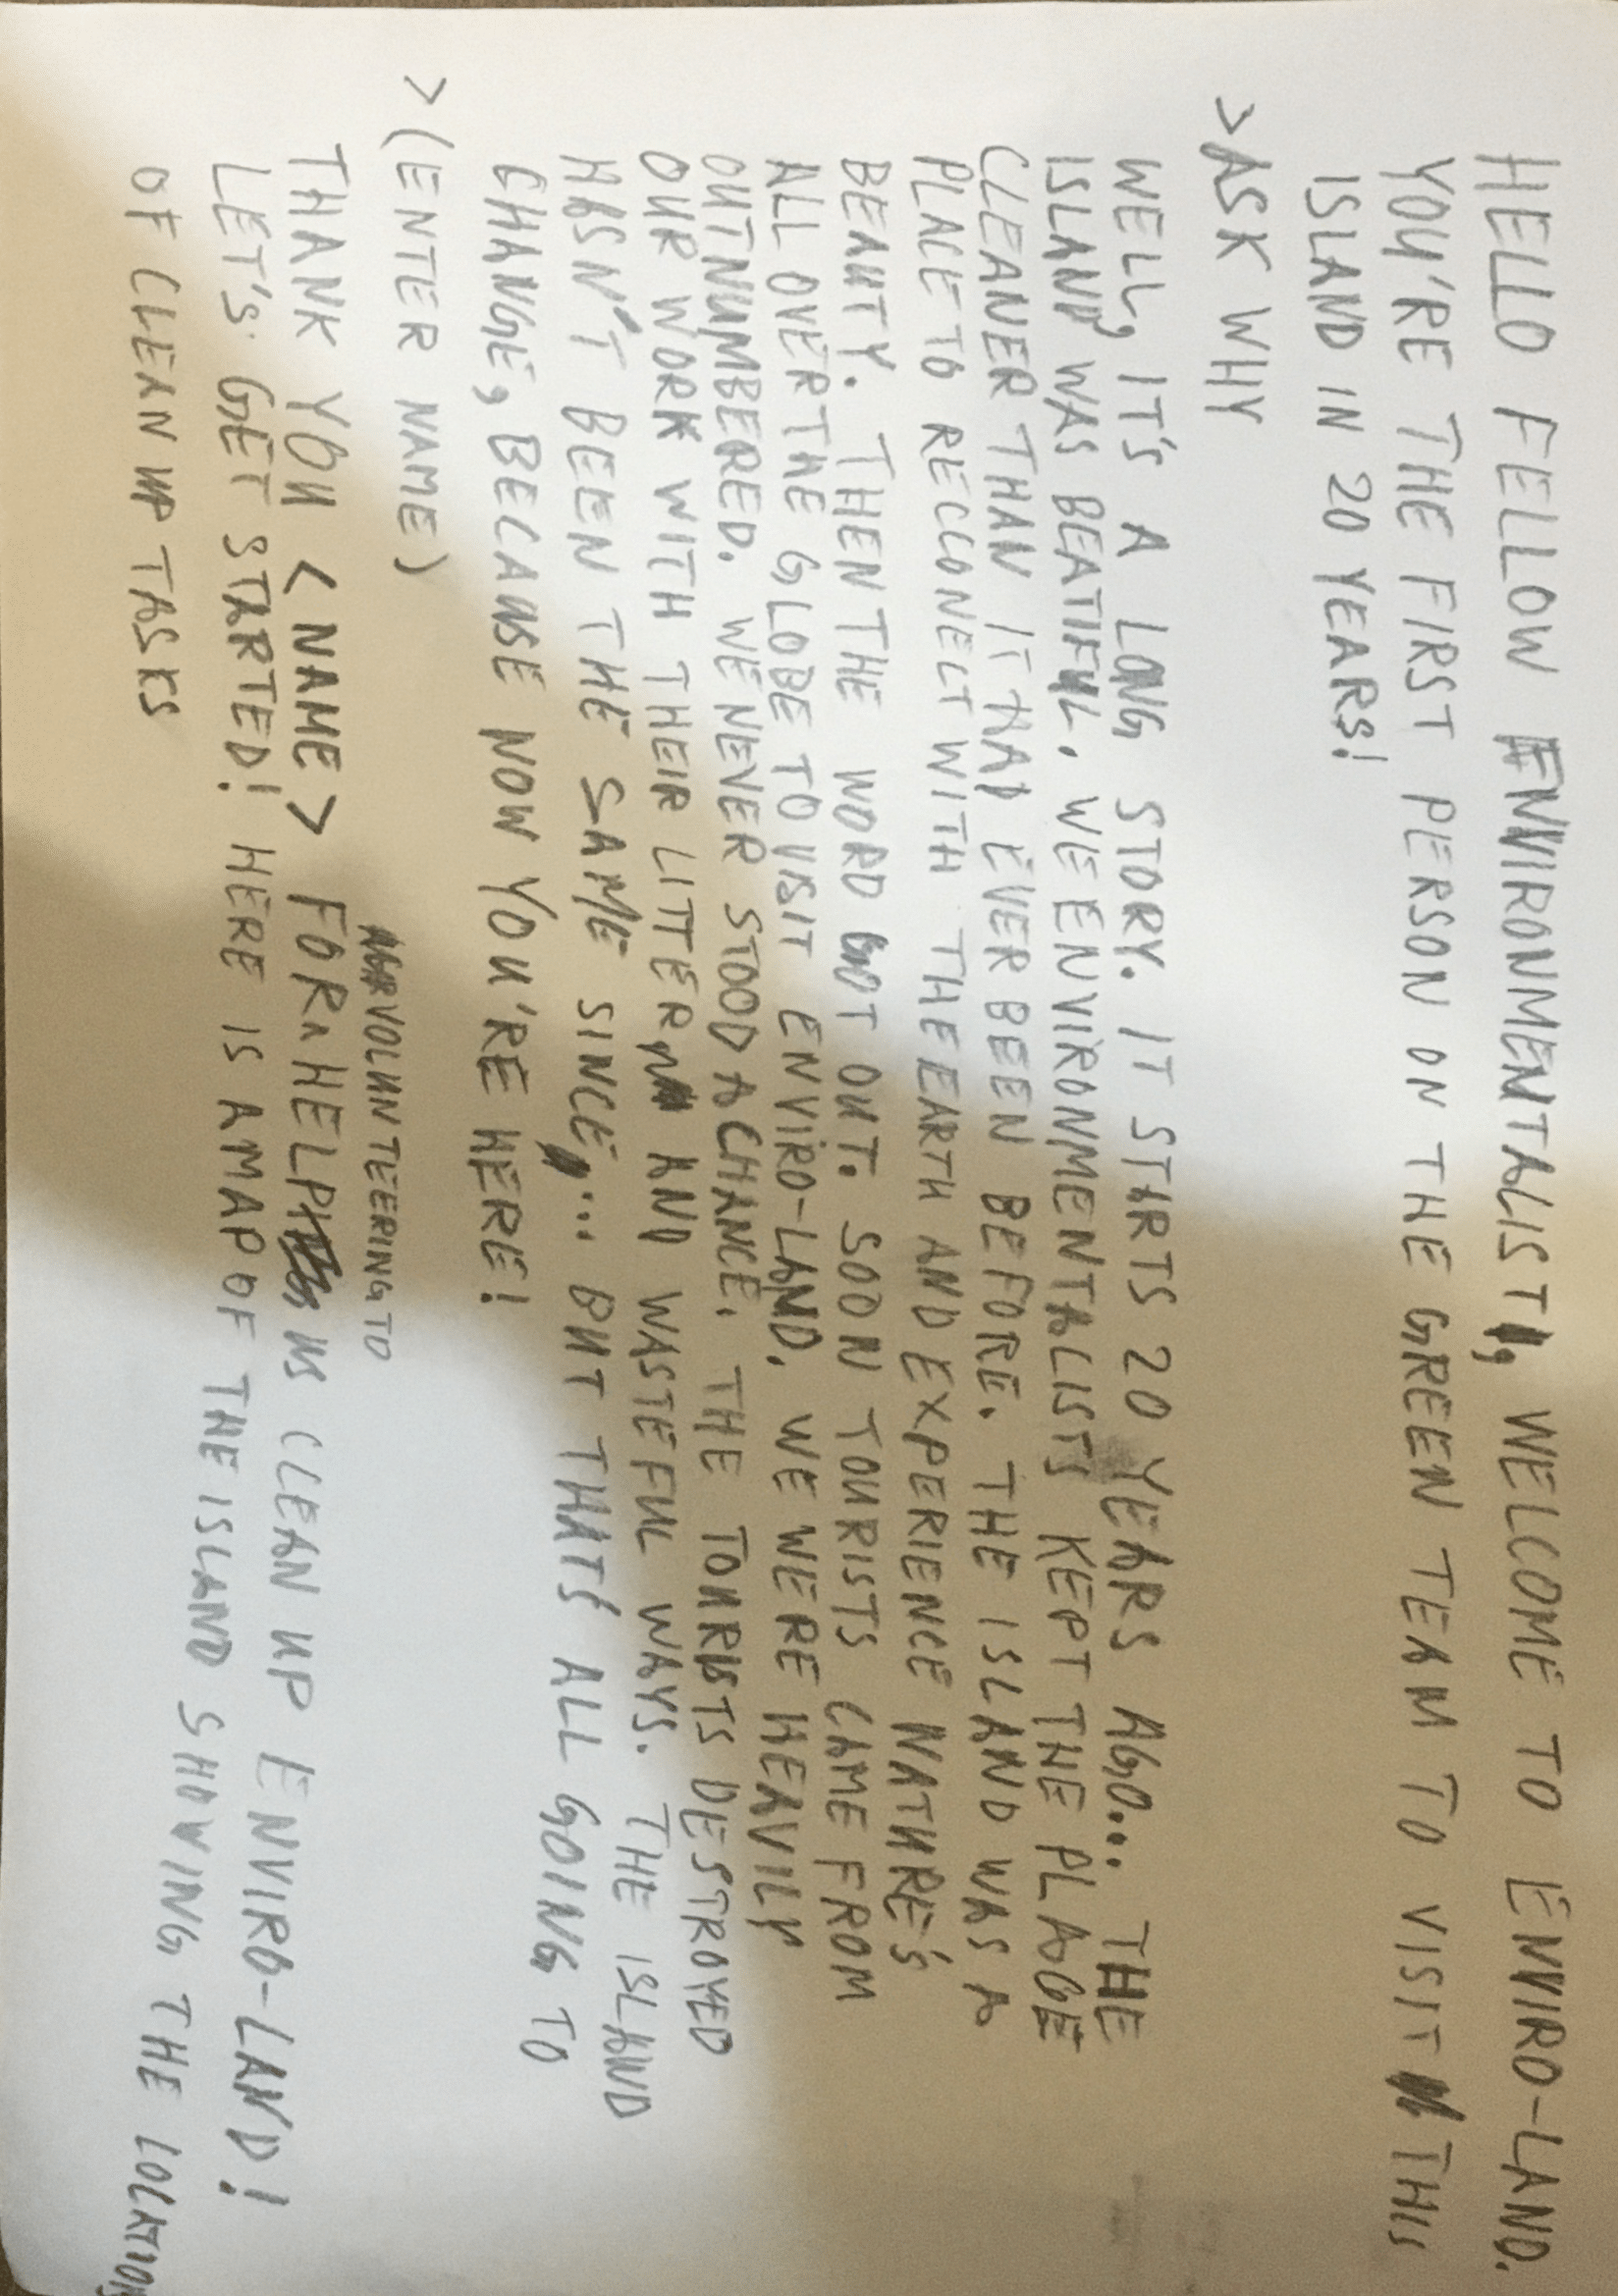 HELLO FELLOW ENVIRONMENTALIST, WELCOME TO ENVIRO-LAND.
YOU'RE THE FIRST PERSON ON THE GREEN TEAM TO VISIT THIS
ISLAND IN 20 YEARS!
>ASK WHY
WELL, IT'S A LONG STORY. IT STARTS 20 YEARS AGO... THE
ISLAND WAS BEATIFUL. WE ENVIRONMENTALISTS KEPT THE PLACE
CLEANER THAN IT HAD EVER BEEN BEFORE. THE ISLAND WAS A
PLACE TO RECCONECT WITH THE EARTH AND EXPERIENCE NATURE'S
BEAUTY. THEN THE WORD GOT OUT. SOON TOURISTS CAME FROM
ALL OVER THE GLOBE TO VISIT ENVIRO-LAND. WE WERE HEAVILY
OUTNUMBERED. WE NEVER STOOD A CHANCE. THE TOURISTS DESTROYED
OUR WORK WITH THEIR LITTER AND WASTEFUL WAYS. THE ISLAND
HASN'T BEEN THE SAME SINCE... BUT THATS ALL GOING TO
CHANGE, BECAUSE NOW YOU'RE HERE!
>(ENTER NAME)
VOLUNTEERING TO
THANK YOU <NAME> FOR ^ HELP US CLEAN UP ENVIRO-LAND!
LET'S GET STARTED! HERE IS A MAP OF THE ISLAND SHOWING THE LOCATION
OF CLEAN UP TASKS